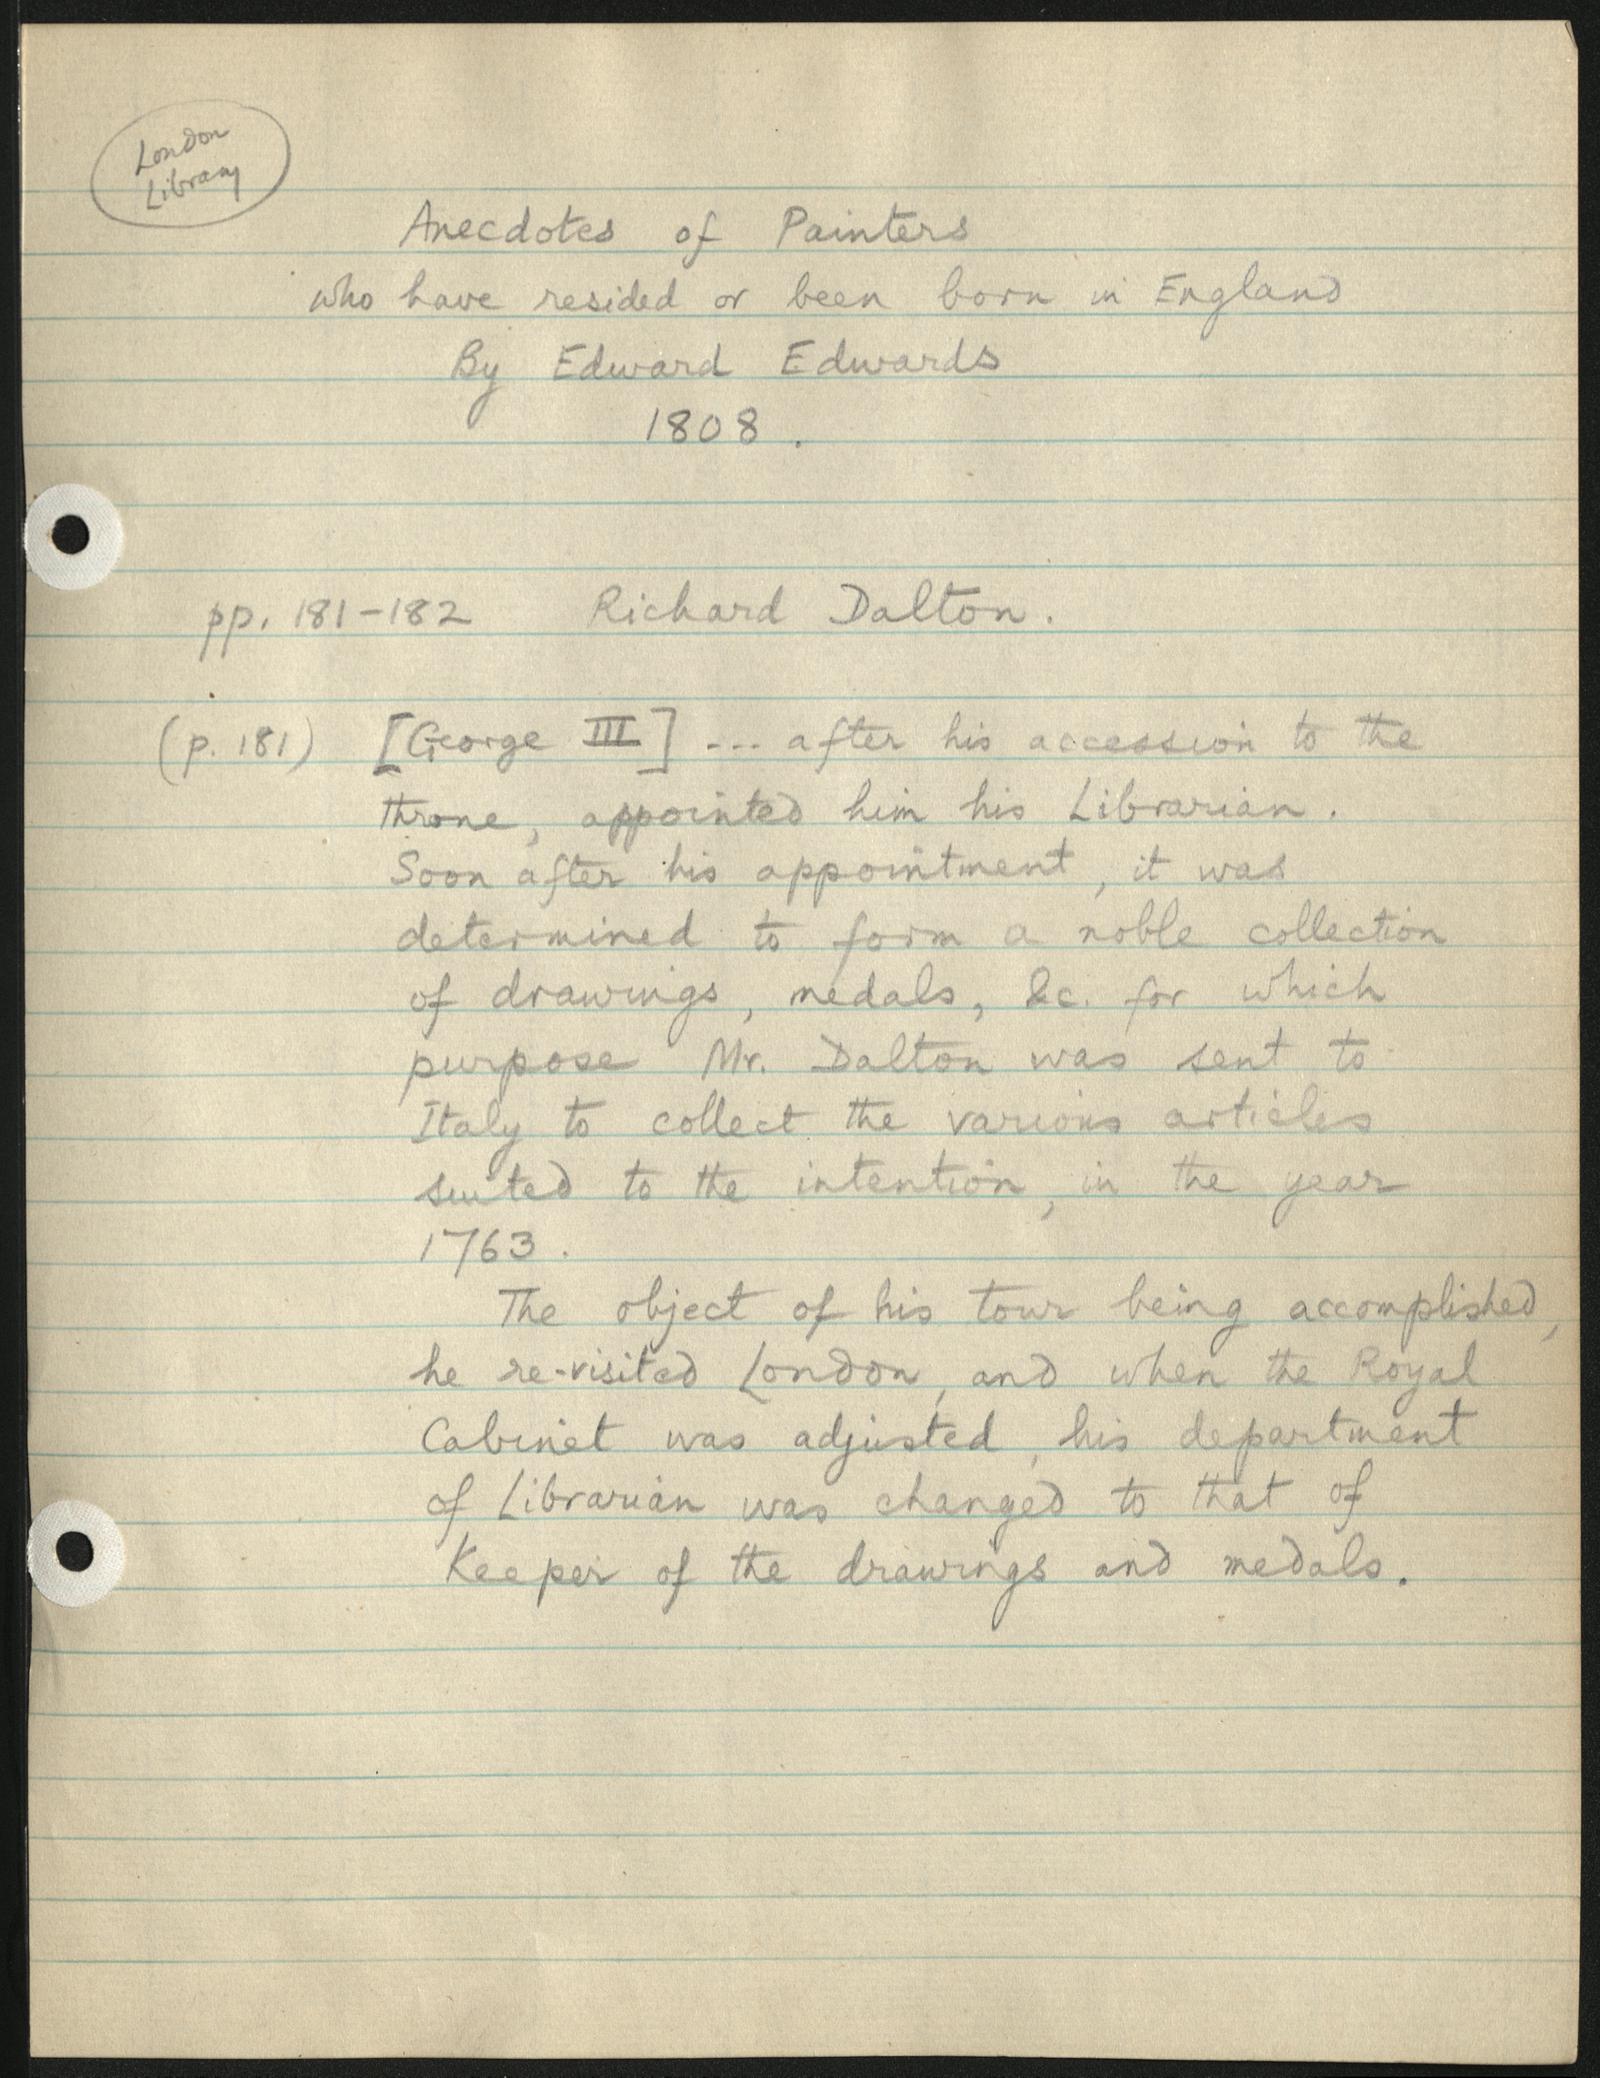 London
Library
Anecdotes of Painters
who have resided or been born in England
By Edward Edwards
1808.
pp. 181-182 Richard Dalton.
(p. 181) [George III] --- after his accession to the
throne, appointed him his Librarian.
Soon after his appointment, it was
determined to form a noble collection
of drawings, medals, &c. for which
purpose Mr. Dalton was sent to
Italy to collect the various articles
suited to the intention, in the year
1763.
The object of his tour being accomplished,
he re-visited London, and when the Royal
Cabinet was adjusted, his department
of Librarian was changed to that of
Keeper of the drawings and medals.